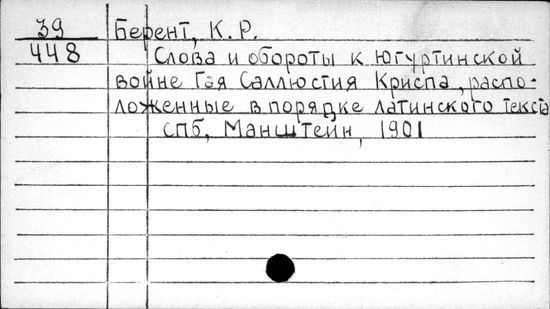 39 Берент, К. Р.
448 Слова и обороты к Югуртинской
войне Гая Саллюстия Криспа, распо-
ложенные в порядке латинского текста
СПб, Манштейн, 1901